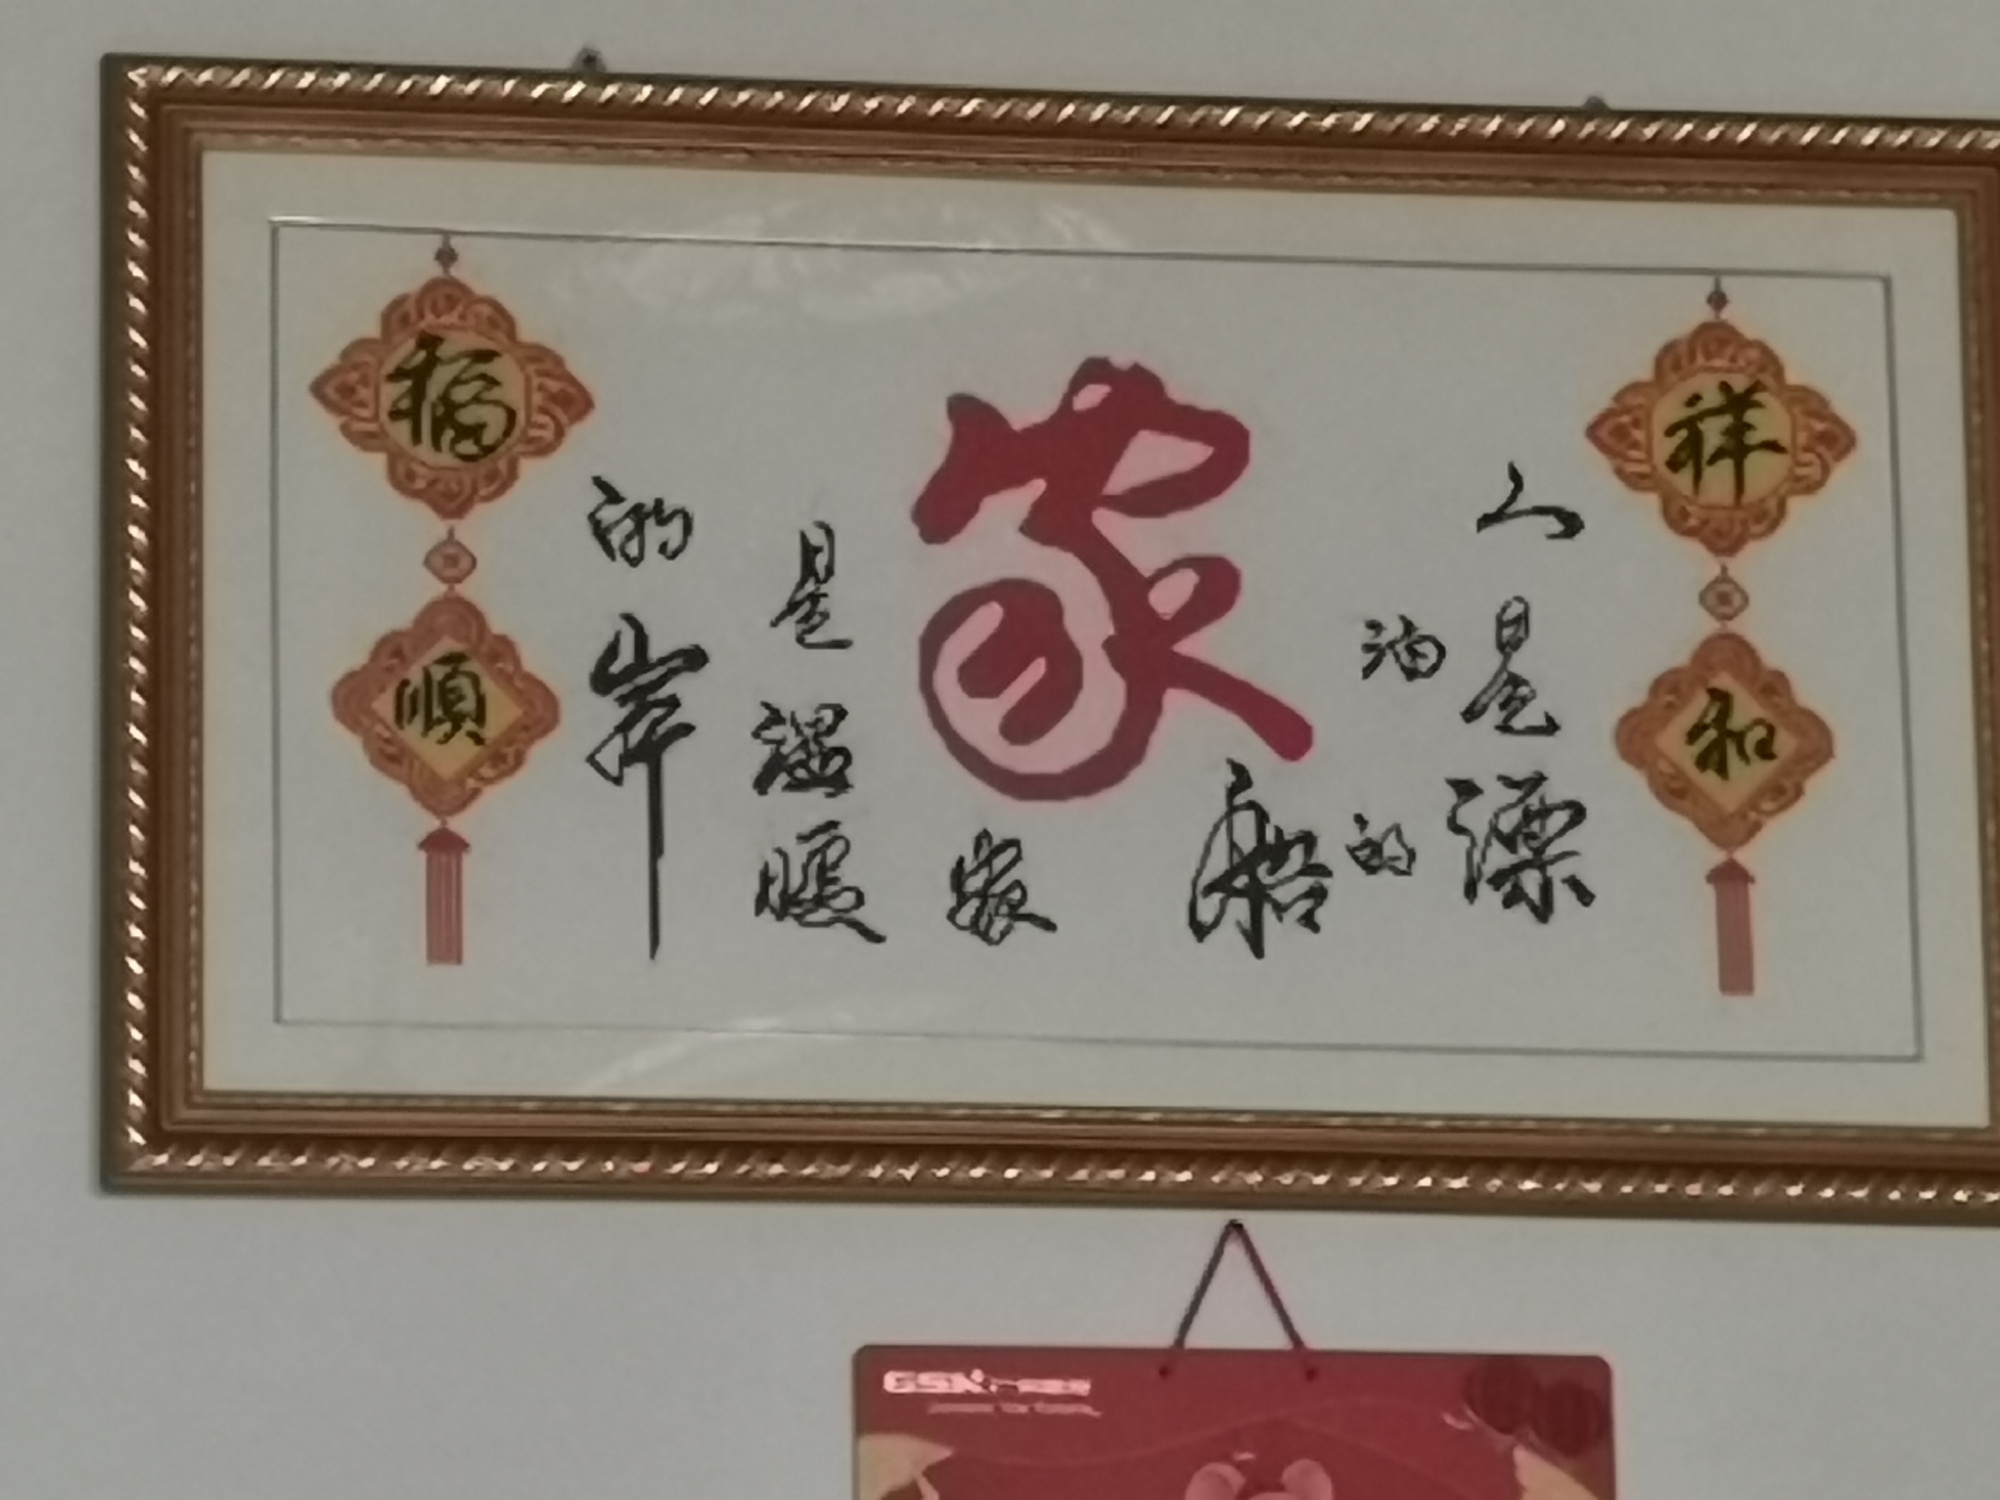 祥
和
人是漂
泊的船
家
家
是温暖
的岸
福
順
GSK